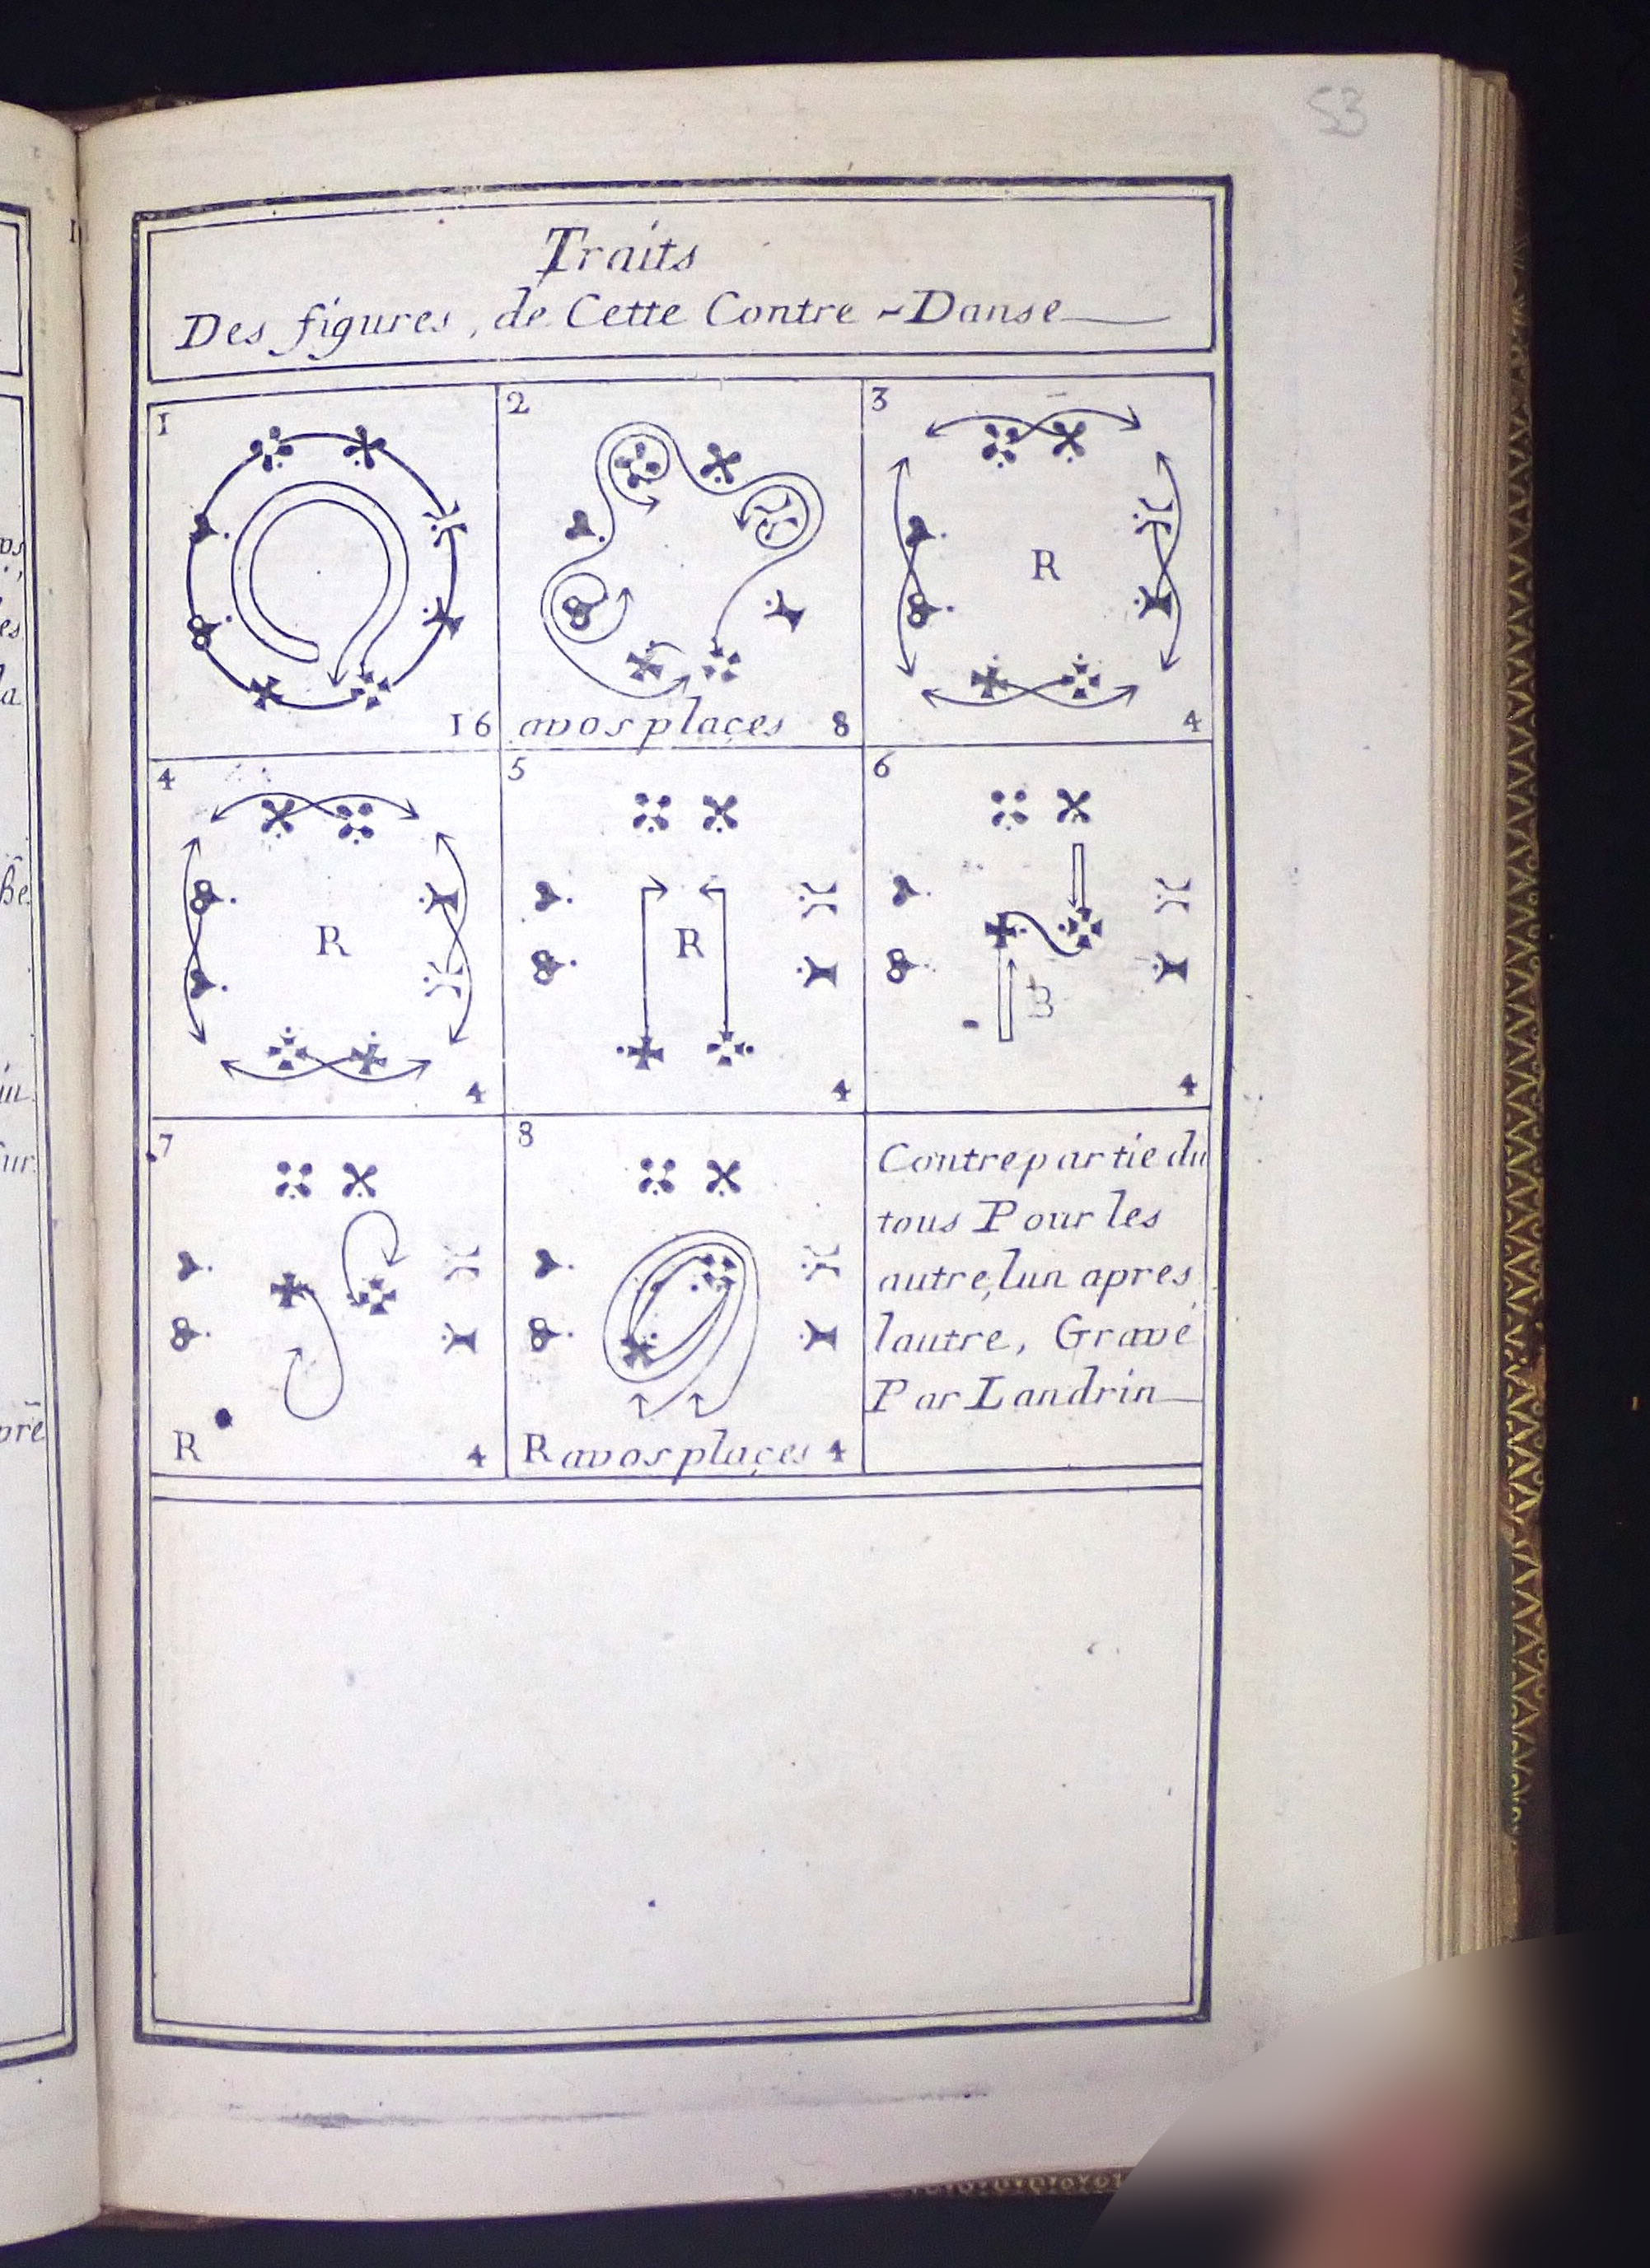 53
Traits
Des figures, de Cette Contre-Danse
1
16
2
avos places 8
3
R
4
4
R
4
5
R
4
6
4
7
R
4
8
R avos places 4
Contrepartie du
tous Pour les
autre, lun apres
lautre, Gravé
Par Landrin